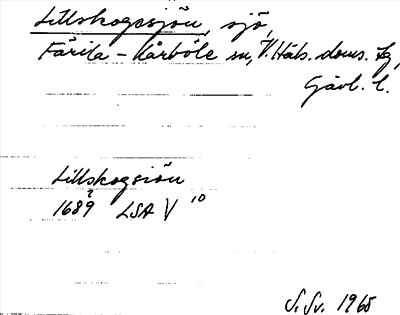 Lillskogssjön, sjö,
Färila - Kårböle sn, V. Häls. doms. lg,
Gävl. l.
Lillskogsiön
1689 ? LSA V 10
S. Sv. 1965